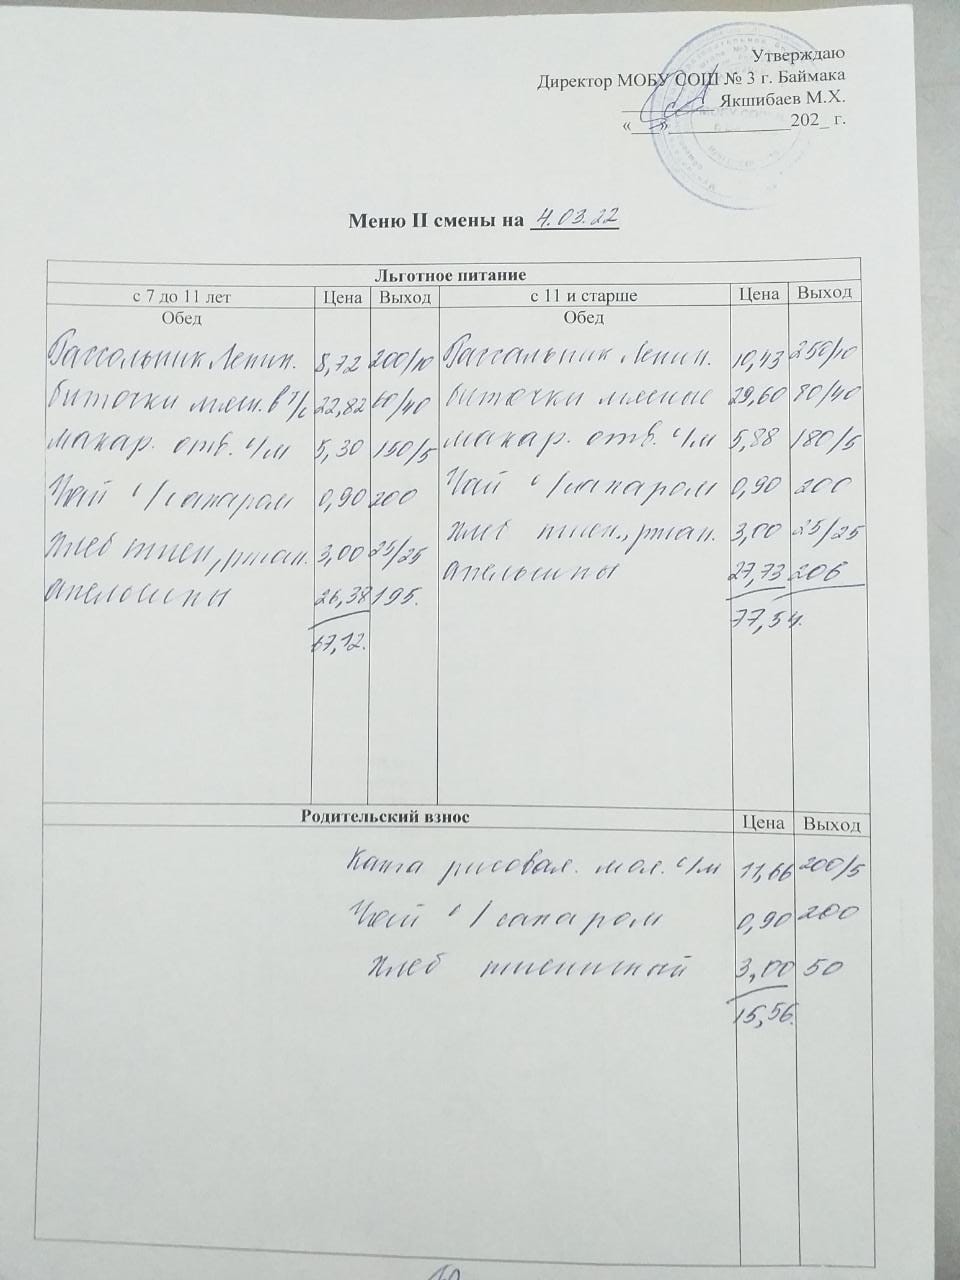 Утверждаю
Директор МОБУ СОШ № 3 г. Баймака
Якшибаев М.Х.
« » 202_ г.
Меню II смены на 4.03.22
Льготное питание
с 7 до 11 лет Цена Выход с 11 и старше Цена Выход
Обед Обед
Рассольник Ленин. 8,72 200/10 Рассольник Ленин. 10,43 250/10
Биточки мясн. в т/с 22,82 60/40 Биточки мясные 29,60 80/40
Макар. отв. с/м 5,30 150/5 Макар. отв. с/м 5,88 180/5
Чай с/сахаром 0,90 200 Чай с/сахаром 0,90 200
Хлеб пшен., ржан. 3,00 25/25 Хлеб пшен., ржан. 3,00 25/25
апельсины 26,38 195. апельсины 27,73 206
67,12. 77,54.
Родительский взнос Цена Выход
Каша рисовая. мол. с/м 11,66 200/5
Чай с/сахаром 0,90 200
Хлеб пшеничный 3,00 50
15,56.